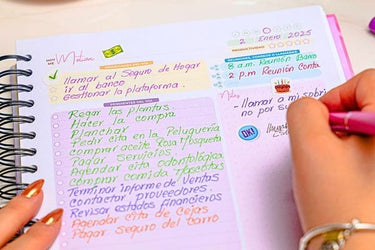 2 Enero 2025
PRODUCTIVIDAD
HOY
ME
Motiva
llamar al Seguro de Hogar
ir al banco
Gestionar la plataforma.
8 a.m. Reunión Bano
2 p.m. Reunión Conta
PENDIENTES DEL DÍA
Regar las plantas
Hacer la compra
Planchar
Pedir cita en la Peluquería
comprar aceite Rosa Mosqueta
Pagar servicios
Agendar cita odontológica
comprar comida mascotas
Terminar informe de Ventas
contactar proveedores.
Revisar estados financieros
Agendar cita de Cejas
Pagar seguro del carro
Notas
-llamar a mi sobri
no por su
OK!